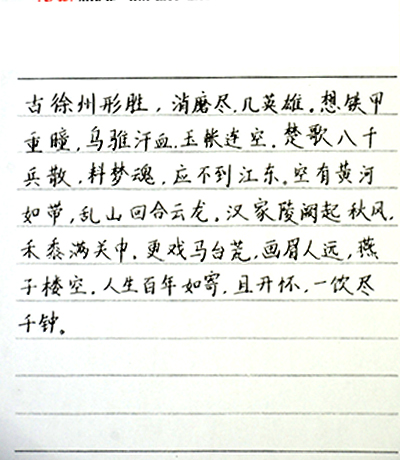 古徐州形胜，消磨尽，几英雄。想铁甲
重瞳，乌骓汗血，玉帐连空。楚歌八千
兵散，料梦魂，应不到江东。空有黄河
如带，乱山回合云龙。汉家陵阙起秋风，
禾黍满关中。更戏马台荒，画眉人远，燕
子楼空。人生百年如寄，且开怀，一饮尽
千钟。